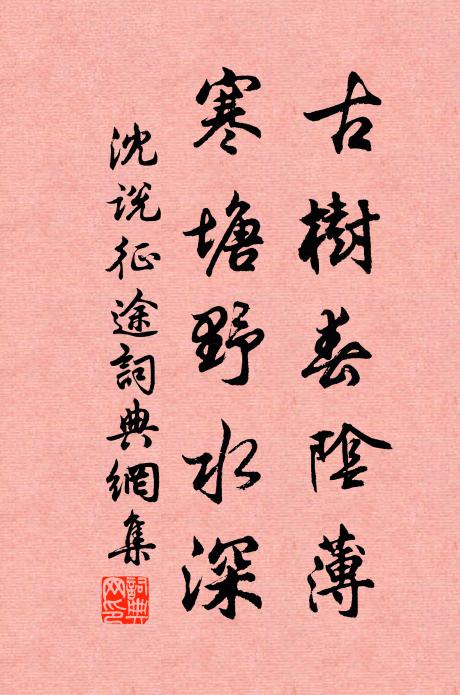 古樹春陰薄
寒塘野水深
沈说征途詞典網集
詞典网印